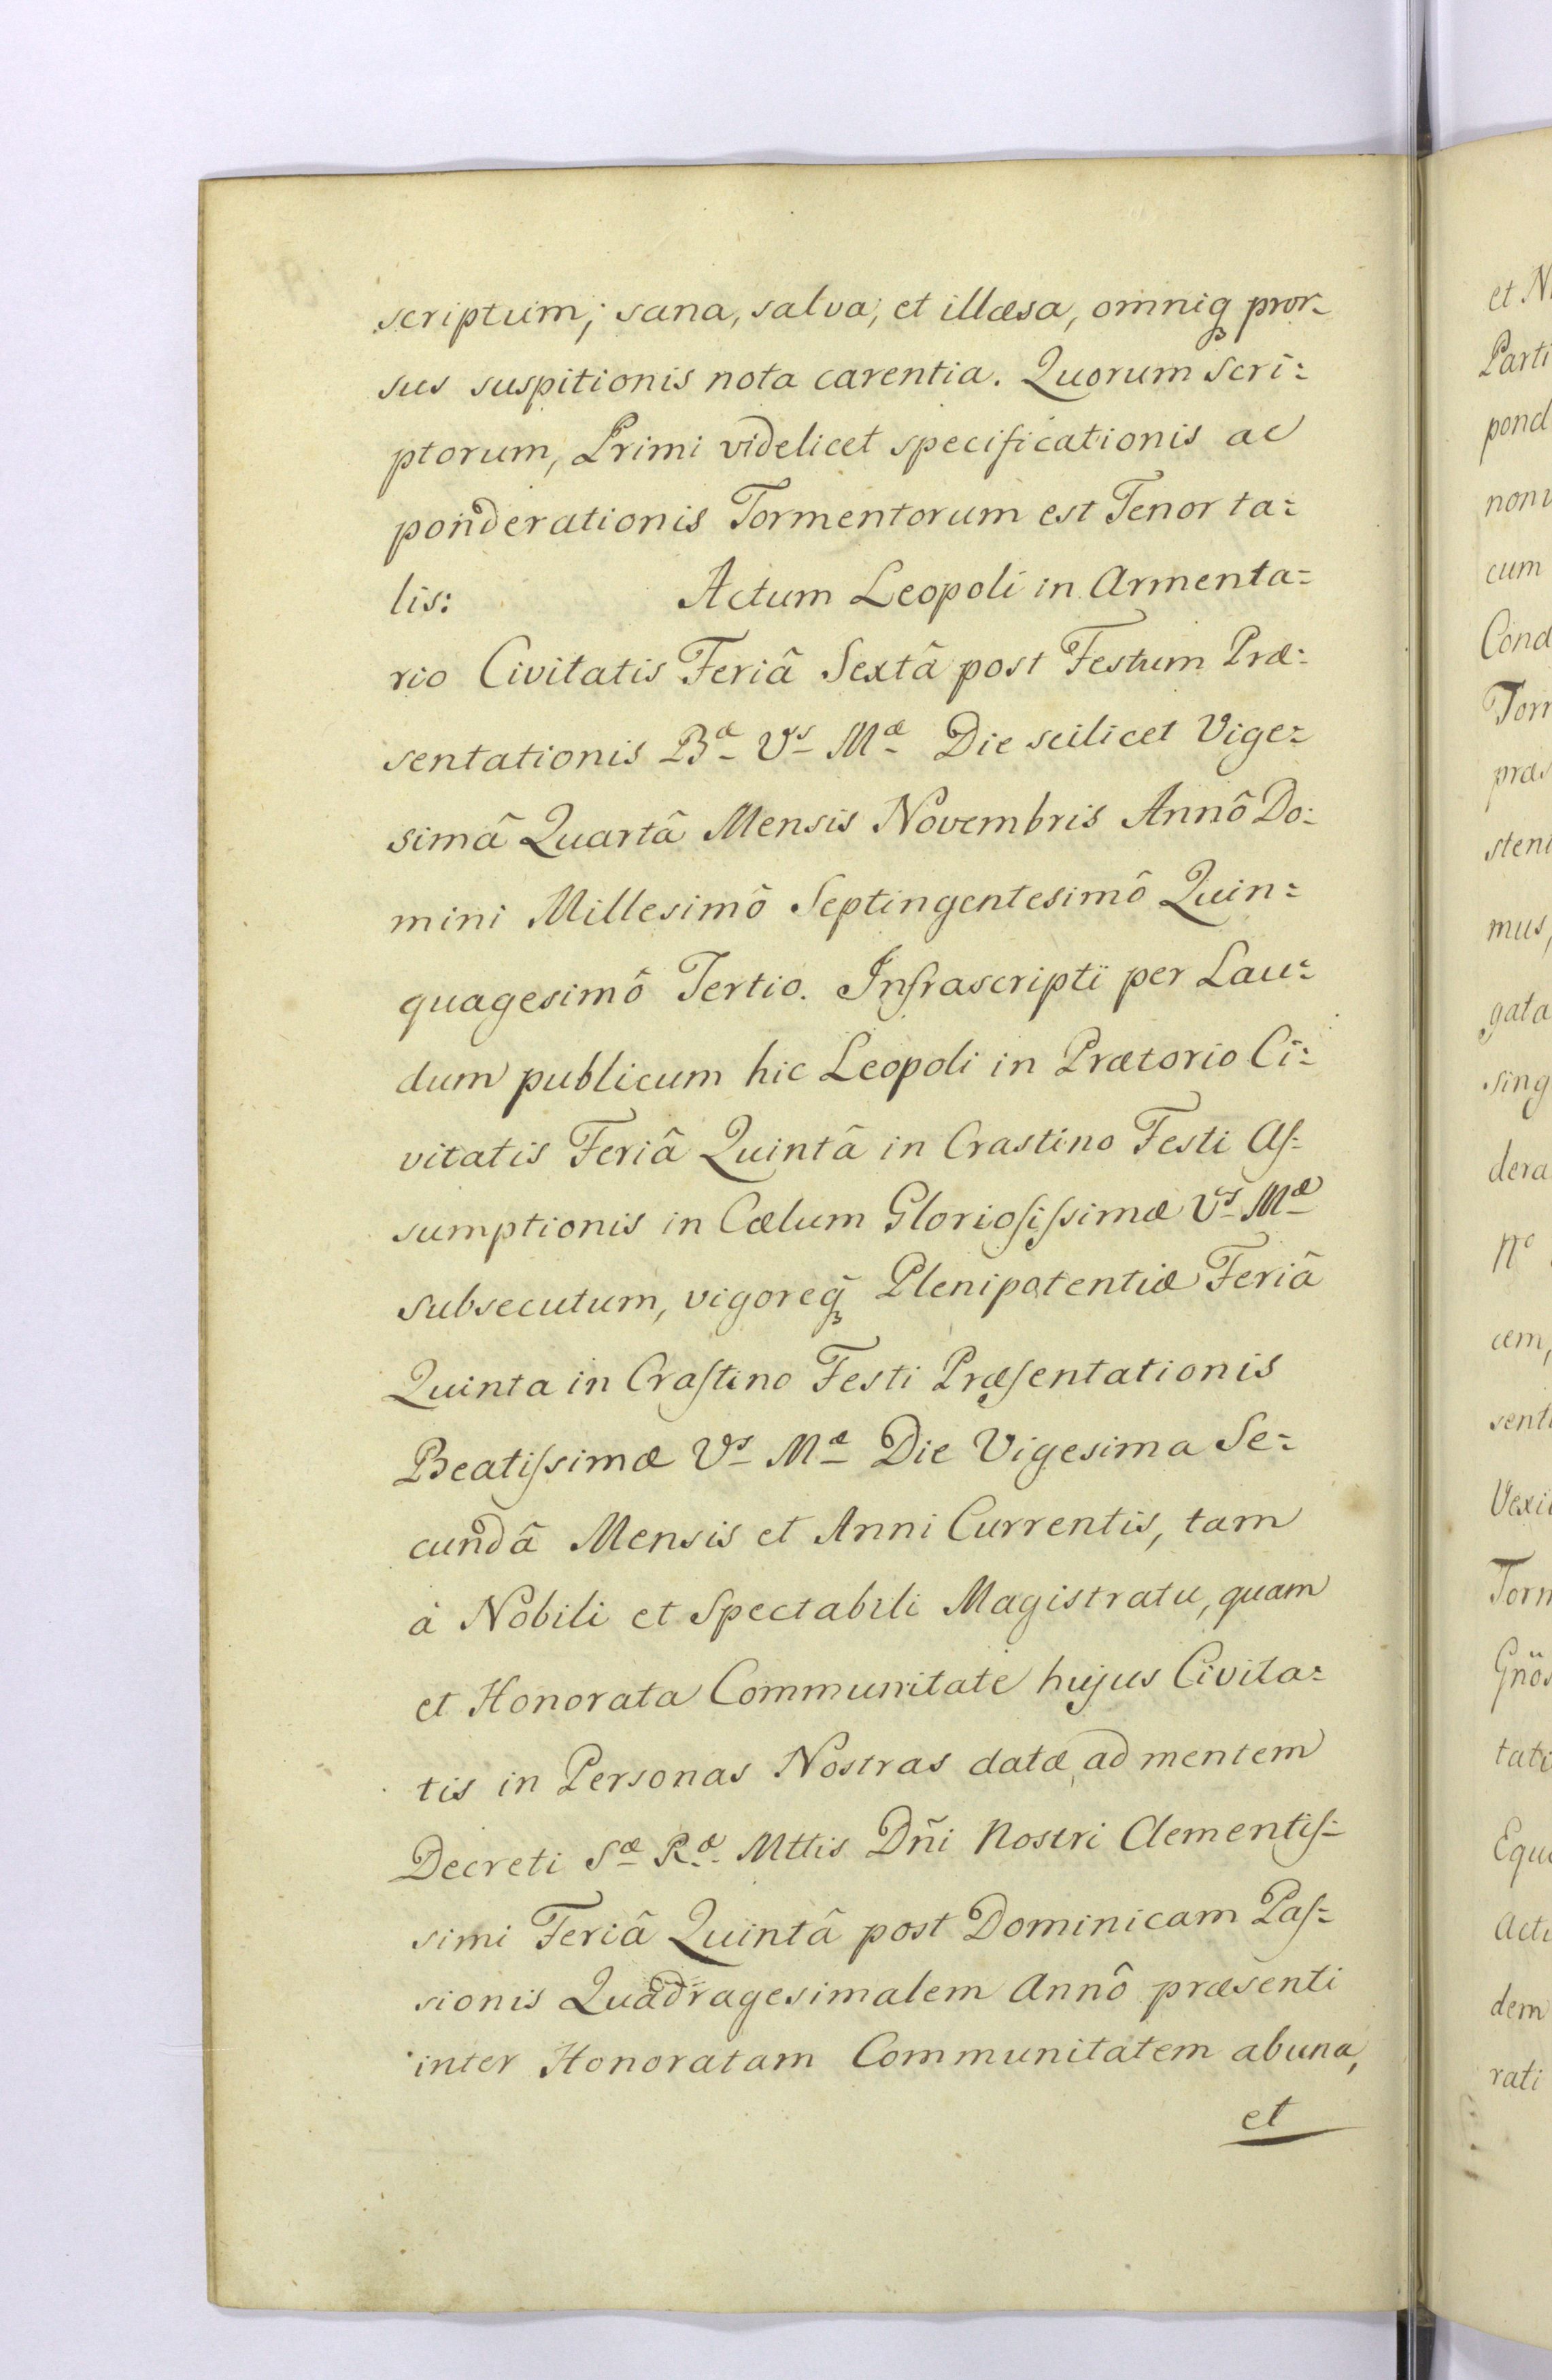 scriptum; sana, salva, et illæsa, omniq̃ pror-
sus suspitionis nota carentia. Quorum Scri=
ptorum, Primi videlicet specificationis ac
ponderationis Tormentorum est Tenor ta=
lis: Actum Leopoli in Armenta=
rio Civitatis Feriâ Sextâ post Festum Præ=
sentationis Bæ Vs Mæ Die scilicet Vige=
simâ Quartâ Mensis Novembris Annô Do=
mini Millesimô Septingentesimô Quin=
quagesimô Tertio. Infrascripti per Lau=
dum publicum hic Leopoli in Prætorio Ci=
vitatis Feriâ Quintâ in Crastino Festi Aſ=
sumptionis in Cælum Glorioſiſsimæ Vs Mæ
subsecutum, vigoreq̃ Plenipotentiæ Feriâ
Quinta in Craſtino Festi Præſentationis
Beatiſsimæ Vs Mæ Die Vigesima Se=
cundâ Mensis et Anni Currentis, tam
à Nobili et Spectabili Magistratu, quam
et Honorata Communitate hujus Civita=
tis in Personas Nostras datæ, ad mentem
Decreti Sæ Ræ Mttis Dñi Nostri Clementiſ=
simi Feriâ Quintâ post Dominicam Paſ=
sionis Quadragesimalem Annô præsenti
inter Honoratam Communitatem ab una,
et
et N
Parti
pond
non
cum
Cond
Torr
præs
sten
mus,
gata
sing
dera
Nc
cem,
senti
Vexil
Torm
Gños
tati
Equ
Act
dem
rati